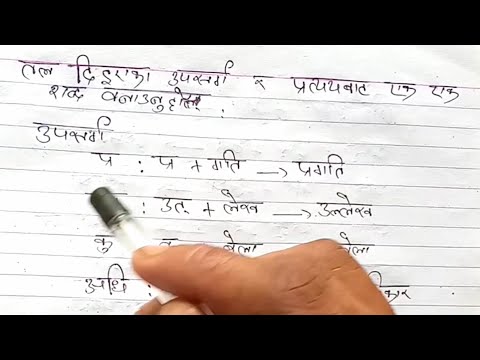 तल दिइएका उपसर्ग र प्रत्ययबाट एक एक
शब्द बनाउनुहोस् :
उपसर्ग
प्र : प्र + गति → प्रगति
: उत् + लेख → उल्लेख
कु
अधि :